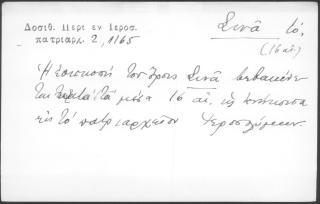 Δοσιθ. Περι εν Ιεροσ.
πατριαρχ. 2, 1165
Σινᾶ τό,
(16 αἰ.)
Ἡ ἐπισκοπὴ τοῦ Ὄρους Σινᾶ
τὰ μέσα 16 αἰ. ὡς
εἰς τὸ πατριαρχεῖον Ἱεροσολύμων.